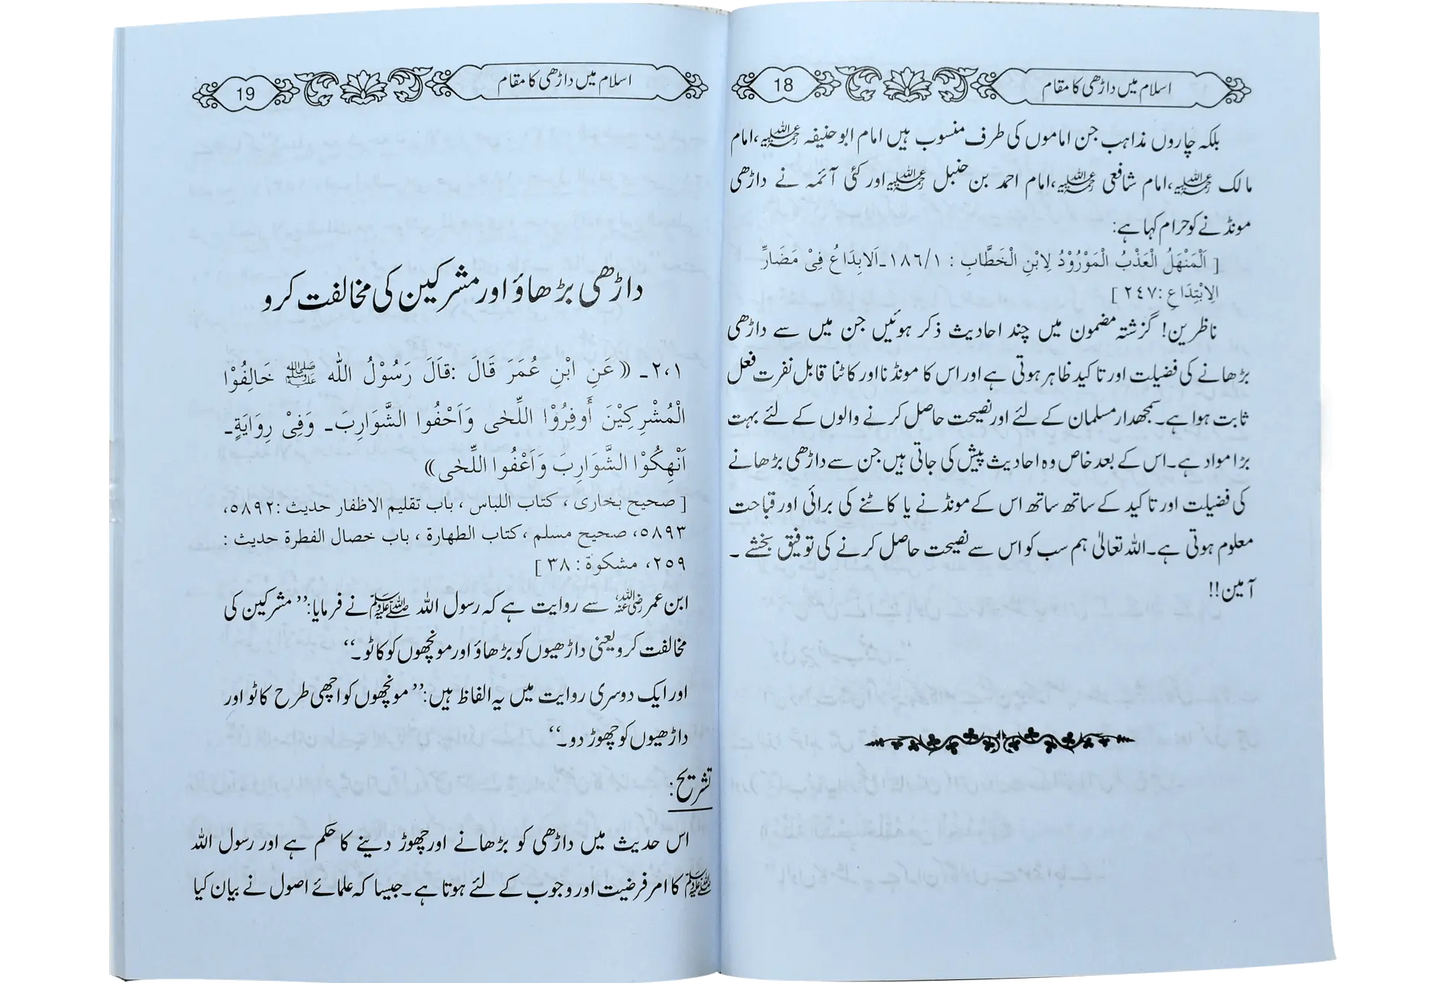 اسلام میں داڑھی کا مقام
18
بلکہ چاروں مذاہب جن اماموں کی طرف منسوب ہیں امام ابو حنیفہ رحمہ اللہ، امام
مالک رحمہ اللہ، امام شافعی رحمہ اللہ، امام احمد بن حنبل رحمہ اللہ اور کئی آئمہ نے داڑھی
مونڈنے کو حرام کہا ہے:
[ اَلْمَنْهَلُ الْعَذْبُ الْمَوْرُوْدُ لِابْنِ الْخَطَّابِ : ١٨٦/١ـ اَلابِدَاعُ فِیْ مَضَارِّ
الِابْتِدَاعِ : ٢٤٧ ]
ناظرین! گزشتہ مضمون میں چند احادیث ذکر ہوئیں جن میں سے داڑھی
بڑھانے کی فضیلت اور تاکید ظاہر ہوتی ہے اور اس کا مونڈنا اور کاٹنا قابل نفرت فعل
ثابت ہوا ہے۔ سمجھدار مسلمان کے لئے اور نصیحت حاصل کرنے والوں کے لئے بہت
بڑا مواد ہے۔ اس کے بعد خاص وہ احادیث پیش کی جاتی ہیں جن سے داڑھی بڑھانے
کی فضیلت اور تاکید کے ساتھ ساتھ اس کے مونڈنے یا کاٹنے کی برائی اور قباحت
معلوم ہوتی ہے۔ اللہ تعالیٰ ہم سب کو اس سے نصیحت حاصل کرنے کی توفیق بخشے ۔
آمین!!
اسلام میں داڑھی کا مقام
19
داڑھی بڑھاؤ اور مشرکین کی مخالفت کرو
٢،١ـ ((عَنِ ابْنِ عُمَرَ قَالَ :قَالَ رَسُوْلُ اللّٰه ﷺ خَالِفُوْا
الْمُشْرِكِيْنَ أَوفِرُوْا اللِّحٰى وَاَحْفُوا الشَّوَارِبَـ وَفِیْ رِوَايَةٍـ
اَنْهِكُوْا الشَّوَارِبَ وَاَعْفُوا اللِّحٰى))
[ صحیح بخاری ، کتاب اللباس ، باب تقلیم الاظفار حدیث :٥٨٩٢،
٥٨٩٣، صحیح مسلم ، کتاب الطهارة ، باب خصال الفطرة حدیث :
٢٥٩، مشکوة : ٣٨ ]
ابن عمر رضی اللہ عنہ سے روایت ہے کہ رسول اللہ ﷺ نے فرمایا: ’’مشرکین کی
مخالفت کرو یعنی داڑھیوں کو بڑھاؤ اور مونچھوں کو کاٹو۔‘‘
اور ایک دوسری روایت میں یہ الفاظ ہیں: ’’مونچھوں کو اچھی طرح کاٹو اور
داڑھیوں کو چھوڑ دو۔‘‘
تشریح:
اس حدیث میں داڑھی کو بڑھانے اور چھوڑ دینے کا حکم ہے اور رسول اللہ
ﷺ کا امر فرضیت اور وجوب کے لئے ہوتا ہے۔ جیسا کہ علمائے اصول نے بیان کیا